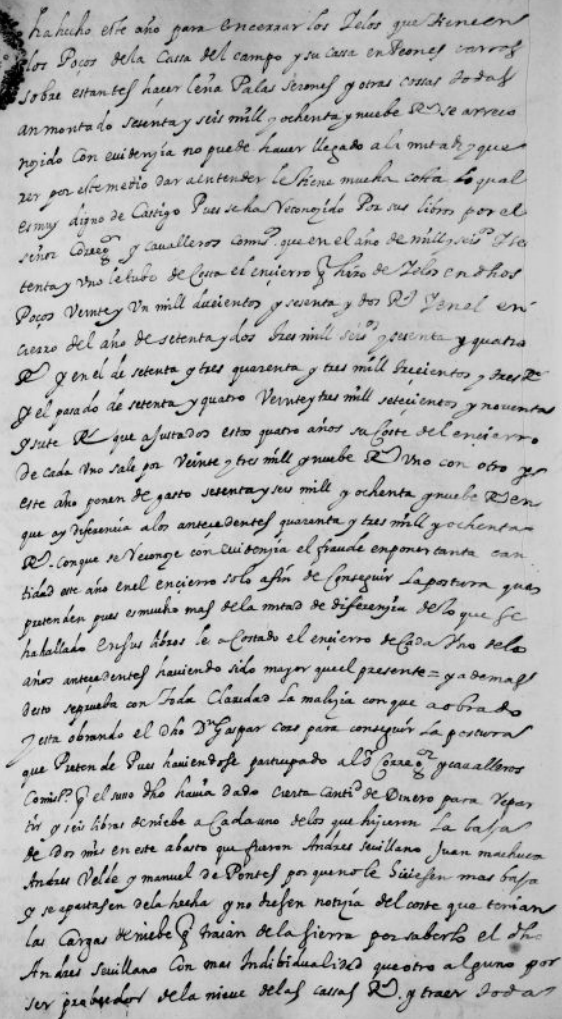 ha hecho este año para encerrar los Ielos que tiene en
los Poços dela Cassa del campo y su cassa en Peones carros
sobre estantes hacer leña Palas serones y otras cossas todas
an montado setenta y seis mill y ochenta y nuebe Rs se a reco
nozido Con euidenzia no puede haver llegado a la mitad y que
rer por este medio dar a entender le tiene mucha costa lo qual
es muy digno de Castigo Pues se ha Reconozido Por sus libros por el
señor Corregr y cavalleros comisº que en el año de mill y seisº y se
tenta y Uno le tubo de Costa el encierro q hizo de Ielos en dhos
Poços Veinte y Un mill ducientos y sesenta y dos Rs Y en el en
cierro del año de setenta y dos tres mill seisº y sesenta y quatro
Rs y en el de setenta y tres quarenta y tres mill trecientos y tres Rs
y el pasado de setenta y quatro Veinte y tres mill setecientos y noventa
y siete Rs que ajustados estos quatro años su Coste del encierro
de cada Uno sale por Veinte y tres mill y nuebe Rs Uno con otro y
este año ponen de gasto setenta y seis mill y ochenta y nuebe Rs en
que ay diferencia a los antecedentes quarenta y tres mill y ochenta
Rs. Conque se Reconoze con euidenzia el fraude en poner tanta can
tidad este año en el encierro solo a fin de Conseguir La postura que
pretenden pues es mucho mas de la mitad de diferenzia de lo que se
ha hallado en sus libros le a Costado el encierro de Cada Uno de los
años antecedentes haviendo sido mayor que el presente = y ademas
desto se prueba con Toda Claridad La malizia con que a obrado
y esta obrando el dho Dn Gaspar para conseguir La postura
que Pretende Pues haviendose participado al Sr Corregr y cavalleros
Comisº q el suso dho havia dado cierta Cantid de Dinero para repar
tir y seis libras de niebe a Cada uno de los que hizieron La baja
de Dos mrs en este abasto que fueron Andres sevillano Juan machuca
Andres Velde y manuel de Pontes por que no le hiziesen mas baja
y se apartasen de la hecha y no diesen notizia del coste que tenian
las Cargas de niebe q traian de la sierra por saberlo el dho
Andres sevillano Con mas Indibidualidad que otro alguno por
ser probeedor de la nieve de las cassas Rs. y traer toda